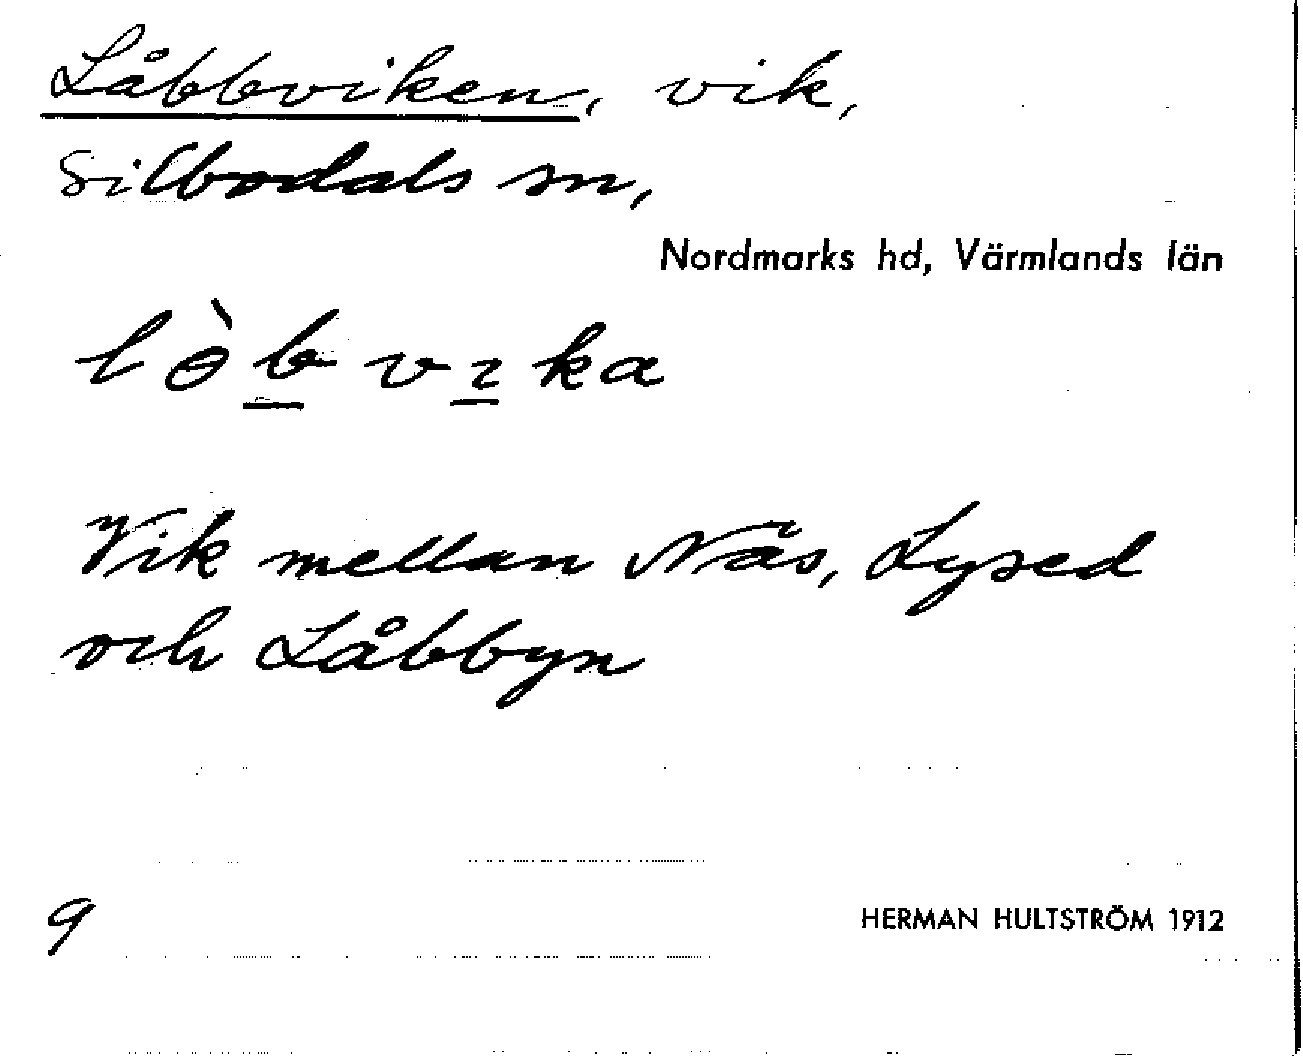 Låbbviken, vik,
Silbodals sn,
Nordmarks hd, Värmlands län
lɵ̀b̲vɪ̲ka
Vik mellan Näs, Lysed
och Låbbyn
9
HERMAN HULTSTRÖM 1912